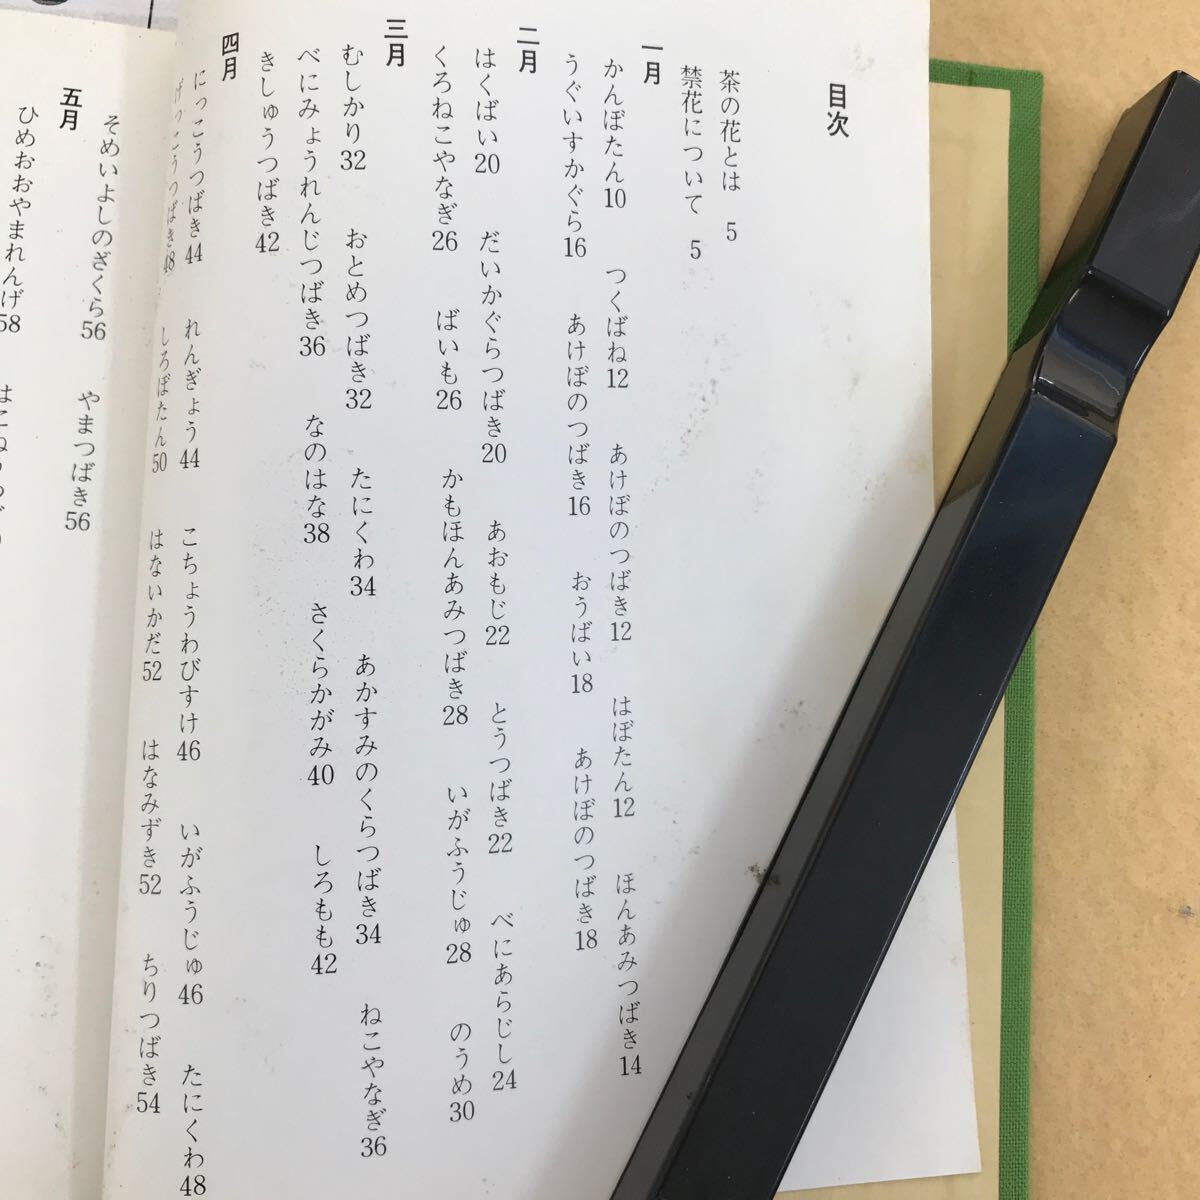 目次
茶の花とは 5
禁花について 5
一月
かんぼたん10 つくばね12 あけぼのつばき12 はぼたん12 ほんあみつばき14
うぐいすかぐら16 あけぼのつばき16 おうばい18 あけぼのつばき18
二月
はくばい20 だいかぐらつばき20 あおもじ22 とうつばき22 べにあらじし24
くろねこやなぎ26 ばいも26 かもほんあみつばき28 いがふうじゅ28 のうめ30
三月
むしかり32 おとめつばき32 たにくわ34 あかすみのくらつばき34 ねこやなぎ36
べにみょうれんじつばき36 なのはな38 さくらかがみ40 しろもも42
きしゅうつばき42
四月
にっこうつばき44 れんぎょう44 こちょうわびすけ46 いがふうじゅ46 たにくわ48
げっこうつばき48 しろぼたん50 はないかだ52 はなみずき52 ちりつばき54
そめいよしのざくら56 やまつばき56
五月
ひめおおやまれんげ58